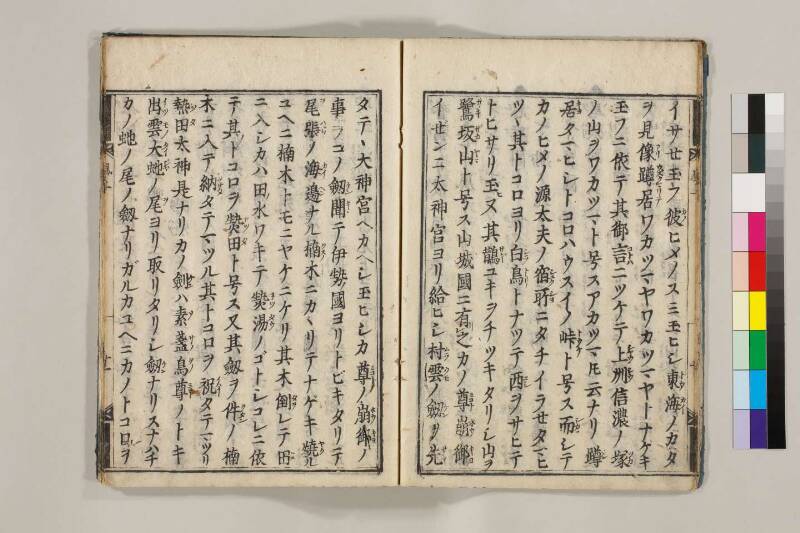 イサせ玉フ彼ヒメノスミ玉ヒシ東海ノカタ
ヲ見像蹲居ワカツマヤワカツマヤトナゲキ
玉フニ依テ其御言ニツケテ上州信濃ノ塚
ノ山ヲワカツマト号スアカツマ𪜈云ナリ蹲
居タマヒシトコロハウスイノ峠ト号ス而シテ
カノヒメノ源太夫ノ宿所ニタチイラせタマヒ
ツヽ其トコロヨリ白鳥トナツテ西ヲサヒテ
トヒサリ玉又其鸖ユキヲチツキタリシ山ヲ
鷺坂山ト号ス山城國ニ有之カノ尊崩御
イせンニ太神宮ヨリ給ヒシ村雲ノ劔ヲ先
タテヽ大神宮ヘカヘシ玉ヒシカ尊ノ崩御ノ
事ヲコノ劔聞テ伊勢國ヨリトビキタリテ
尾張ノ海邊ナル楠木ニカヽリテナゲキ燒ル
ユヘニ楠木トモニヤケニケリ其木倒レテ田
ニ入シカハ田ノ水ワキテ熱湯ノゴトシコレニ依
テ其トコロヲ熱田ト号ス又其劔ヲ件ノ楠
木ニ入テ納タテマツル其トコロヲ祝タテマツリ
熱田太神是ナリカノ劔ハ素盞烏尊ノトキ
出雲大虵ノ尾ヨリ取リタリシ劔ナリスナハチ
カノ虵ノ尾ノ劔ナリガルカユヘニカノトコロヲ